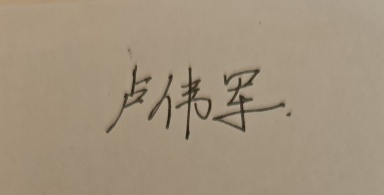 卢伟军.